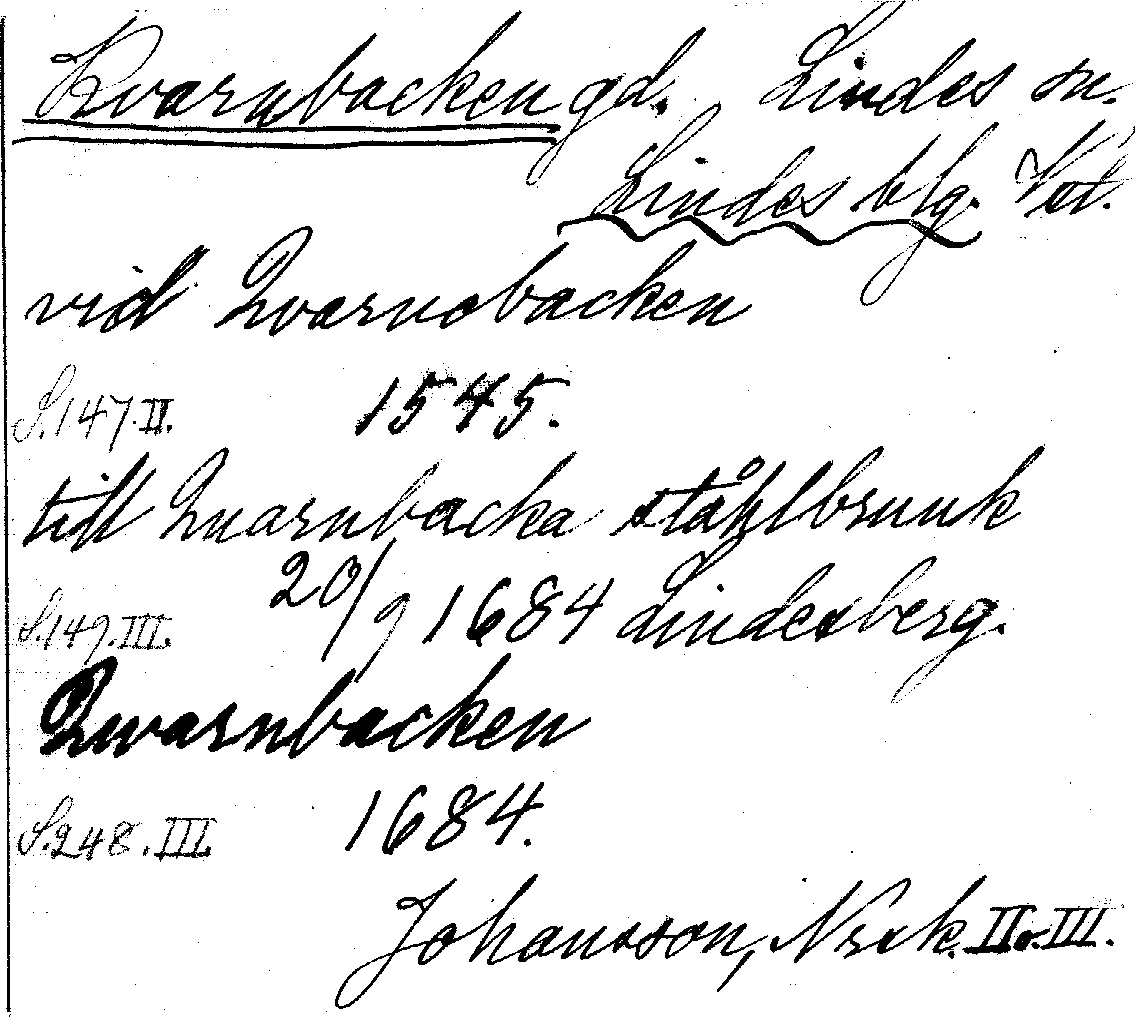 Kvarnbacken gd. Lindes sn.
Lindes blg. Vstl.
vid Qvarnobacken
S. 147. II. 1545.
till Quarnbacka ståhlbruuk
S. 149. III. 20/9 1684 Lindesberg.
Qwarnbacken
S. 248. III. 1684.
Johansson, Nrsk. II o. III.